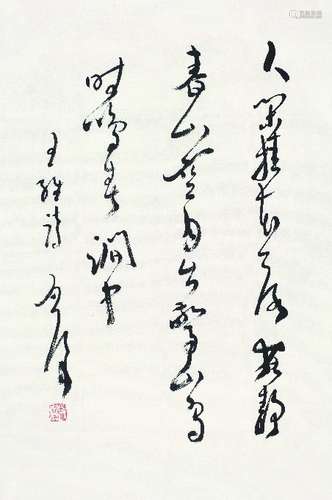 人闲桂花落夜静
春山空月出惊山鸟
时鸣春涧中
王维诗